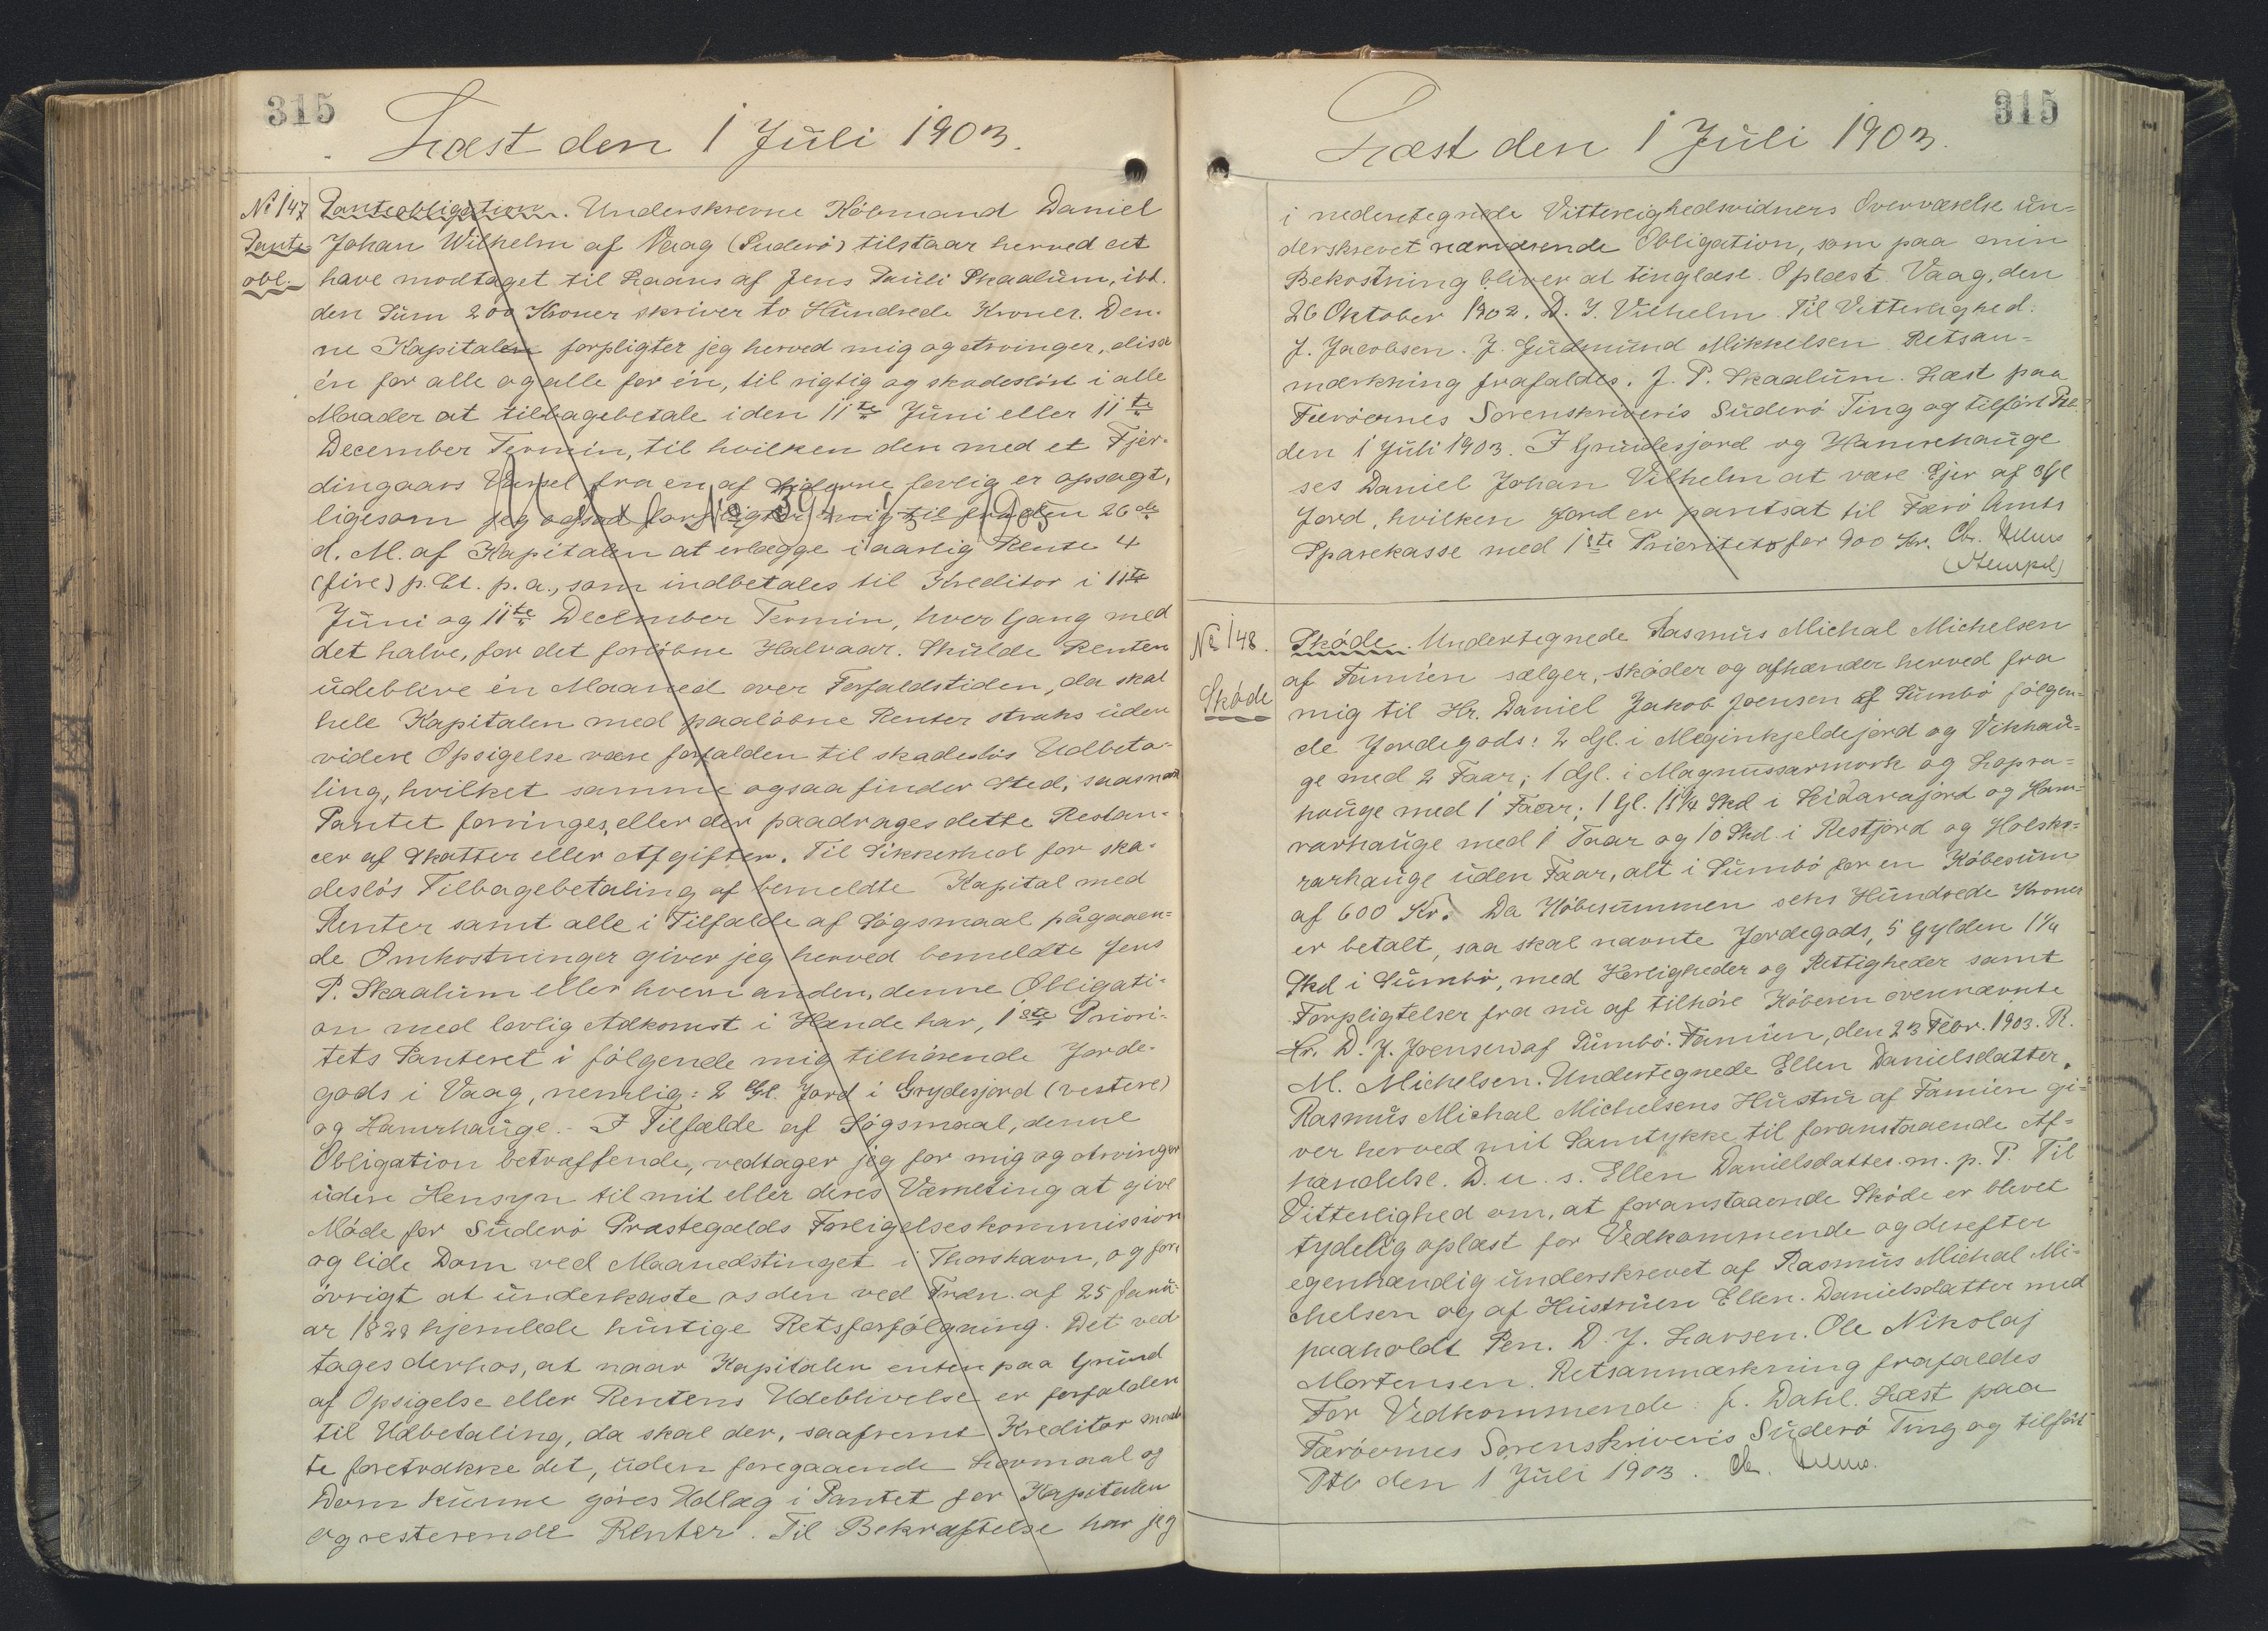 315
Læst den 1 Juli 1903.
No 147
Pante
obl.
Panteobligation. Underskrevne Köbmand Daniel
Johan Wilhelm af Vaag (Suderö) tilstaar herved at
have modtaget til Laans af Jens Pauli Skaalum, ibd.
den Sum 200 Kroner skriver to Hundrede Kroner. Den-
ne Kapitalen forpligter jeg herved mig og Arvinger, disse
én for alle og alle for én, til rigtig og skadeslöst i alle
Maader at tilbagebetale i den 11te Juni eller 11te
December Termin, til hvilken den med et Fjer-
dingaars Varsel fra en af Siderne lovlig er opsagt,
ligesom jeg ogsaa forpligter mig til fra den 26de
d. M. af Kapitalen at erlægge i aarlig Rente 4
(fire) p. Ct. p. a., som indbetales til Kreditor i 11te
Juni og 11te December Termin, hver Gang med
det halve, for det forlöbne Halvaar. Skulde Renten
udeblive én Maaned over Forfaldstiden, da skal
hele Kapitalen med paalöbne Renter straks uden
videre Opsigelse være forfalden til skadeslös Udbeta-
ling, hvilket samme ogsaa finder Sted, saasnart
Pantet forringes, eller der paadrages dette Restan-
cer af Skatter eller Afgifter. Til Sikkerhed for ska-
deslös Tilbagebetaling af bemeldte Kapital med
Renter samt alle i Tilfælde af Sögsmaal pågaaen-
de Omkostninger giver jeg herved bemeldte Jens
P. Skaalum eller hvem anden, denne Obligati-
on med lovlig Adkomst i Hænde har, 1ste Priori-
tets Panteret i fölgende mig tilhörende Jorde-
gods i Vaag, nemlig: 2 Gl. Jord i Grydesjord (vestere)
og Hamrhauge. - I Tilfælde af Sögsmaal, denne
Obligation betræffende, vedtager jeg for mig og Arvinger
uden Hensyn til mit eller deres Værneting at give
Möde for Suderö Præstegælds Forligelseskommission
og lide Dom ved Maanedstinget i Thorshavn, og for
övrigt at underkaste os den ved Frdn. af 25 Janu-
ar 1828 hjemlede hurtige Retsforfölgning. Det ved
tages derhos, at naar Kapitalen enten paa Grund
af Opsigelse eller Rentens Udeblivelse er forfalden
til Udbetaling, da skal der, saafremt Kreditor maat
te foretrække det, uden foregaaende Lovmaal og
Dom kunne göres Udlæg i Pantet for Kapitalen
og resterende Renter. Til Bekræftelse har jeg
315
Læst den 1 Juli 1903.
i nedentegnede Vitterlighedsvidners Overværelse un-
derskrevet nærværende Obligation, som paa min
Bekostning bliver at tinglæse. Oplæst. Vaag, den
26 Oktober 1902. D. J. Vilhelm. Til Vitterlighed:
J. Jacobsen. J. Gudmund Mikkelsen. Retsan-
mærkning frafaldes. J. P. Skaalum. Læst paa
Færöernes Sorenskriveris Suderö Ting og tilfört Ptb.
den 1 Juli 1903. I Grundesjord og Hamrehauge
ses Daniel Johan Vilhelm at være Ejer af 3 Gl
Jord, hvilken Jord er pantsat til Færö Amts
Sparekasse med 1ste Prioritet for 900 Kr. Ch.
(Stempel)
No 148.
Sköde
Sköde. Undertegnede Rasmus Michal Michelsen
af Famien sælger, sköder og afhænder herved fra
mig til Hr. Daniel Jakob Joensen af Sumbö fölgen-
de Jordegods: 2 Gl. i Meginkjeldejord og Vikhau-
ge med 2 Faar; 1 Gl. i Magnussarmork og Lopra-
hauge med 1 Faar; 1 Gl. 11 1/4 Skd i Leidarajord og Ham-
rarhauge med 1 Faar og 10 Skd. i Restjord og Holsha-
rarhauge uden Faar, alt i Sumbö for en Köbesum
af 600 Kr. Da Köbesummen seks Hundrede Kroner
er betalt, saa skal nævnte Jordegods, 5 Gylden 1 1/4
Skd i Sumbö, med Herligheder og Rettigheder samt
Forpligtelser fra nu af tilhöre Köberen ovennævnte
Hr. D. J. Joensen af Sumbö. Famien, den 23 Febr. 1903. R.
M. Michelsen. Undertegnede Ellen Danielsdatter,
Rasmus Michal Michelsens Hustru af Famien gi-
ver herved mit Samtykke til foranstaaende Af-
hændelse. D. u. s. Ellen Danielsdatter. m. p. P. Til
Vitterlighed om, at foranstaaende Sköde er blevet
tydelig oplæst for Vedkommende og derefter
egenhændig underskrevet af Rasmus Michal Mi-
chelsen og af Hustruen Ellen Danielsdatter med
paaholdt Pen. D. J. Larsen. Ole Nikolaj
Mortensen. Retsanmærkning frafaldes
For Vedkommende: J. Dahl. Læst paa
Færöernes Sorenskriveris Suderö Ting og tilfört
Ptb den 1 Juli 1903. Ch.